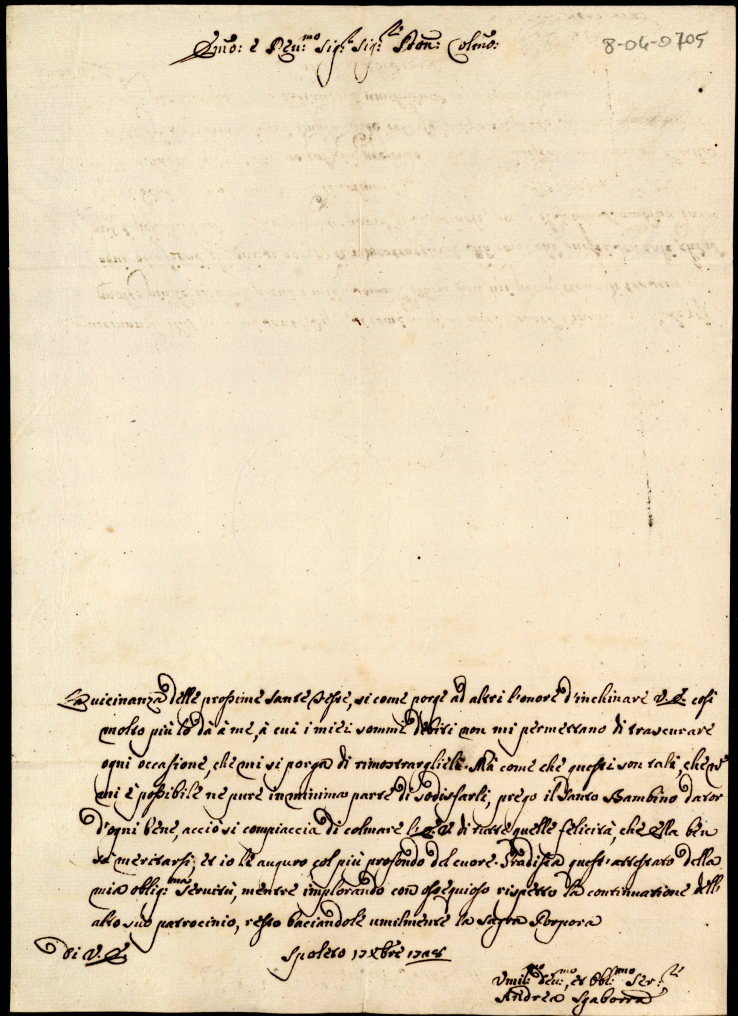 Emo: e Reu:mo Sig:re Sig:re Pron: Colmo:
8-06-0705
La uicinanza delle prossime Sante Feste, si come porge ad altri l'onore d'inchinare V. E. cosi
molto più lo dà à me, à cui i miei sommi debiti non mi permettano di trascurare
ogni occasione, che mi si porga di rimostrarglieli. Mà come che questi son tali, che
mi è possibile ne pure in minima parte di sodisfarli; prego il Santo Bambino dator
d'ogni bene, acciò si compiaccia di colmare l'E. V. di tutte quelle felicità, che Ella ben
sà meritarsi; et io le auguro col più profondo del cuore. Gradisca quest'attestato della
mia oblig:ma Seruitù, mentre implorando con ossequioso rispetto la continuatione dell'
alto suo patrocinio, resto baciandole umilmente la Sagra Porpora
Di V. E.
Spoleto 17 Xbre
Umil:mo deu:mo, et Obl:mo Ser:re
Andrea Sgaborra